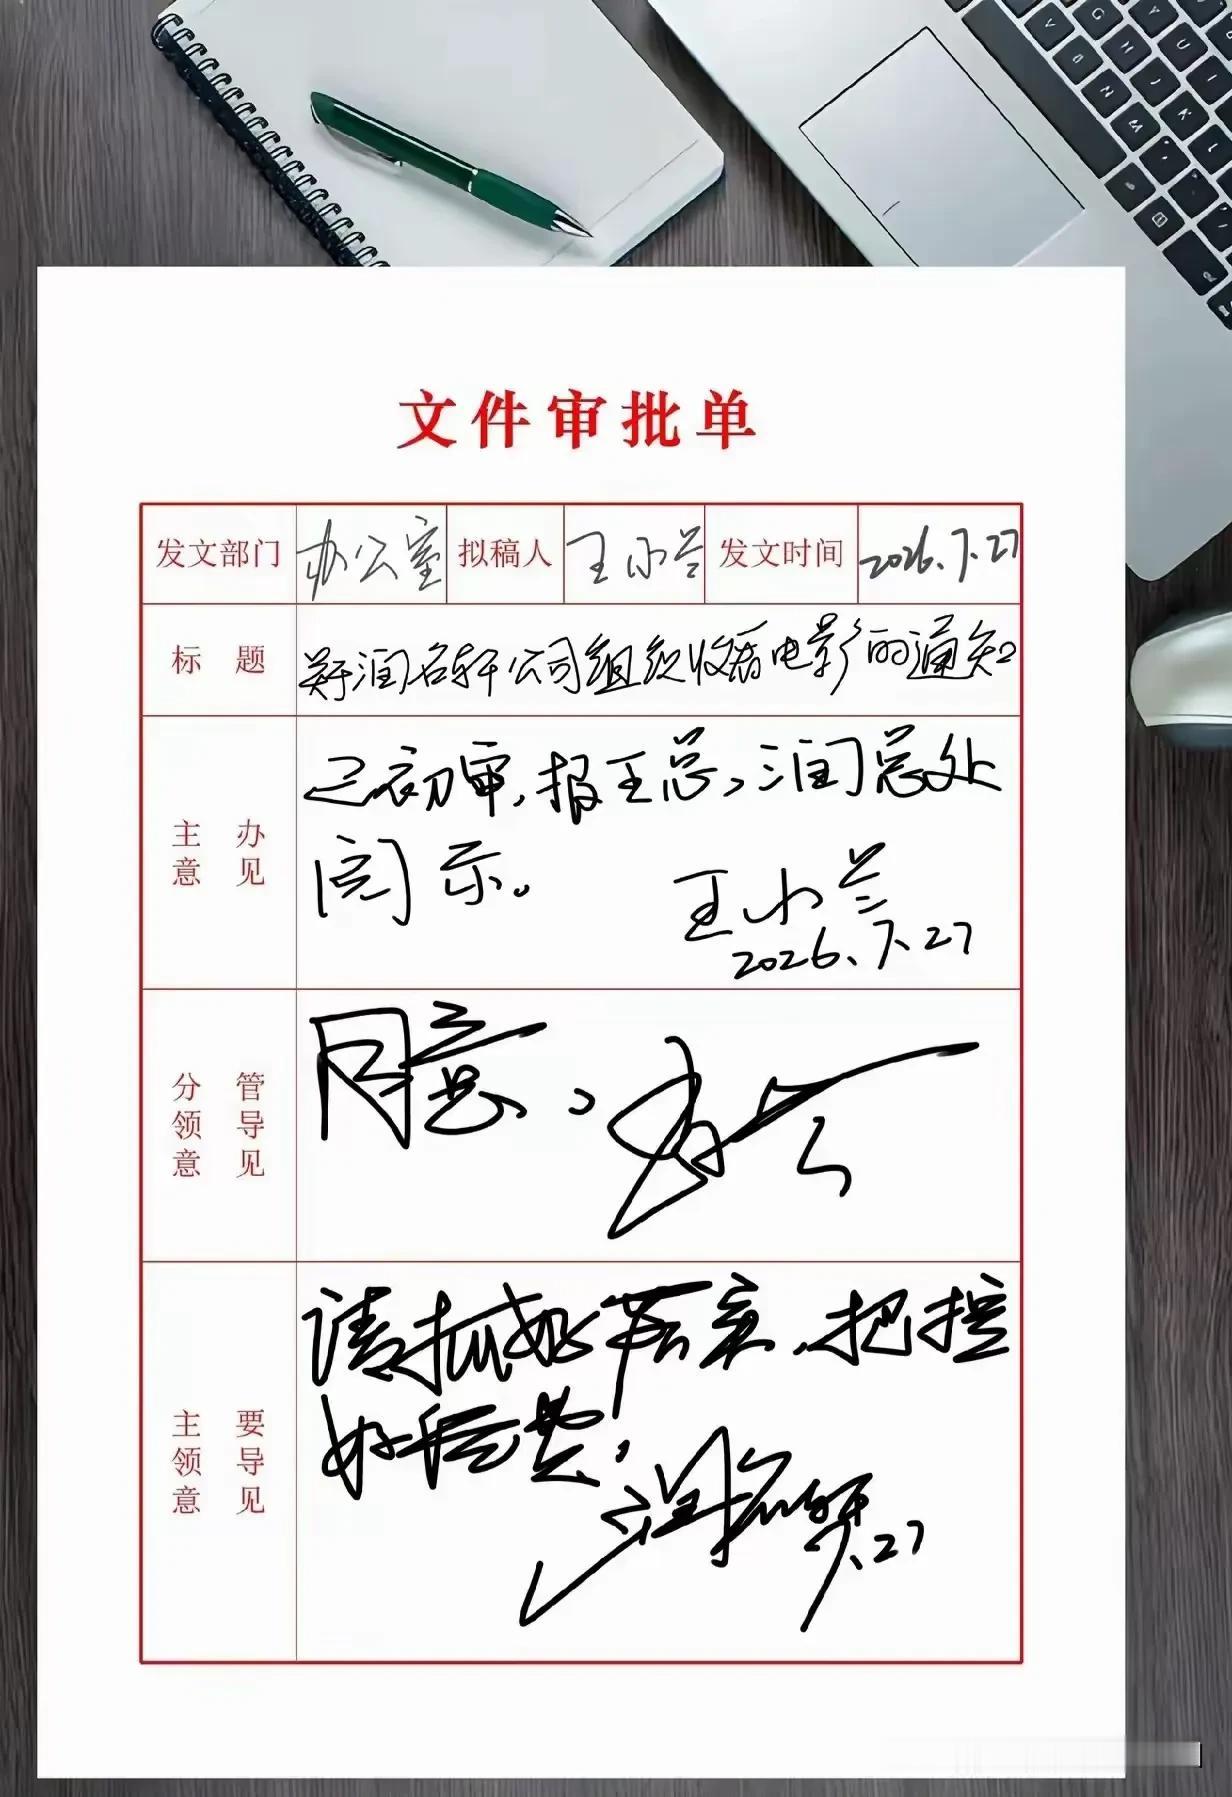 文件审批单
发文部门 办公室 拟稿人 王小兰 发文时间 2026.7.27
标题 关于润名轩公司组织收看电影的通知
主办意见 已初审,报王总,润总处
阅示。
王小兰
2026.7.27
分管领导意见 同意,
主要领导意见 请抓好落实,把控
好经费,
润名轩
7.27